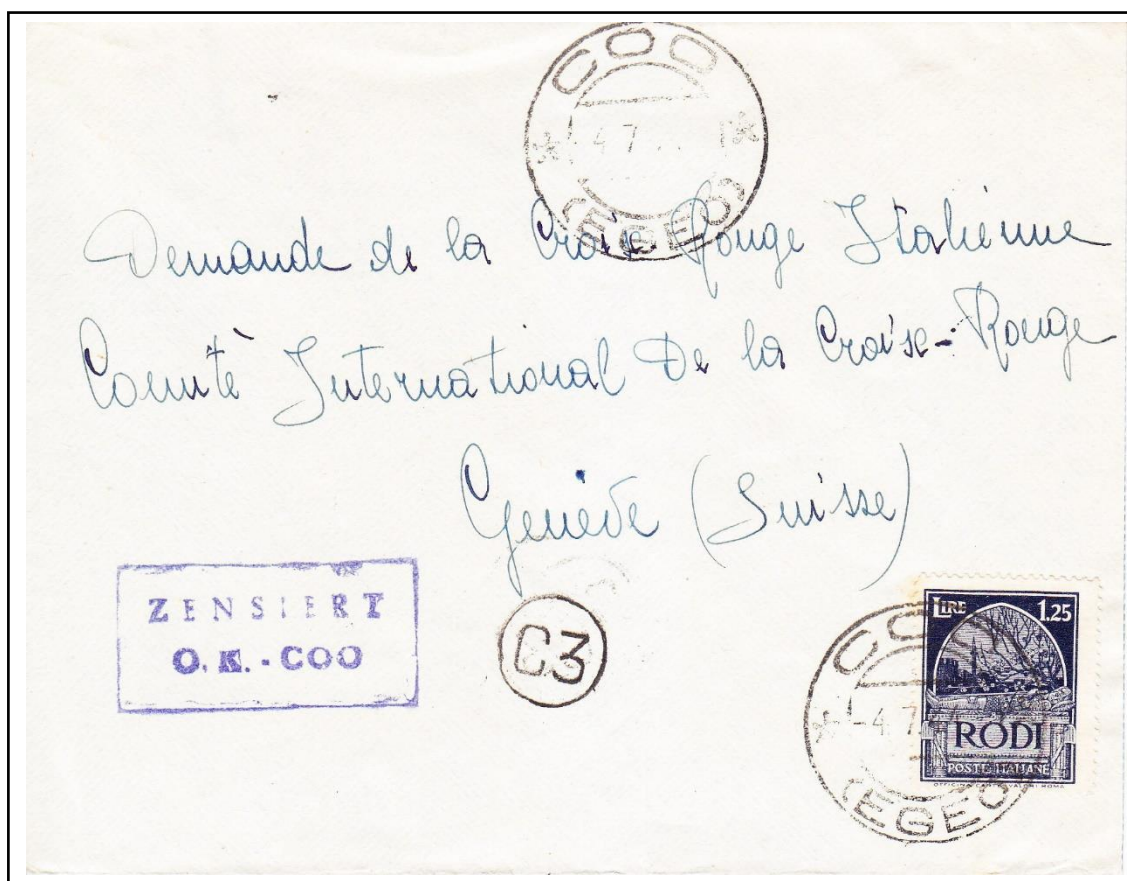 COO
4 7
(EGEO)
Demande de la Croix Rouge Italienne
Comitè International De la Croix-Rouge
Genève (Suisse)
ZENSIERT
O.K.-COO
C3
LIRE 1.25
RODI
POSTE ITALIANE
OFFICINA CARTE VALORI ROMA
COO
-4 7
(EGEO)